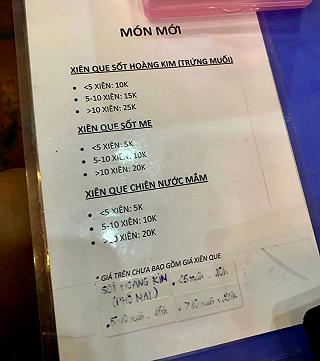 MÓN MỚI
XIÊN QUE SỐT HOÀNG KIM (TRỨNG MUỐI)
• <5 XIÊN: 10K
• 5-10 XIÊN: 15K
• >10 XIÊN: 25K
XIÊN QUE SỐT ME
• <5 XIÊN: 5K
• 5-10 XIÊN: 10K
• >10 XIÊN: 20K
XIÊN QUE CHIÊN NƯỚC MẮM
• <5 XIÊN: 5K
• 5-10 XIÊN: 10K
• >10 XIÊN: 20K
* GIÁ TRÊN CHƯA BAO GỒM GIÁ XIÊN QUE
SỐT HOÀNG KIM • <5 xiên: 10k
(PHÔ MAI)
• 5-10 xiên: 15k • >10 xiên: